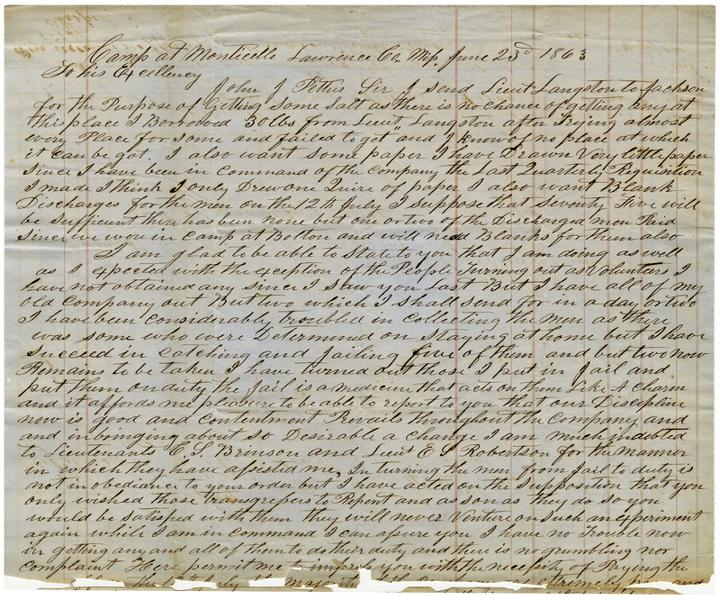 Camp at Monticello Lawrence Co. Mip June 23d 1863
To his Excellency
John J Pettus Sir I send Lieut. Langston to Jackson
for the Purpose of Getting Some Salt as there is no chance of getting any at
this place I Borrowed 30 lbs from Lieut Langston after Trying almost
every Place for some and failed to get and I know of no place at which
it can be got. I also want some paper I have Drawn Very little paper
Since I have been in Command of the Company the Last Quarterly Requisition
I made I think I only Drew one Quire of paper I also want Blank
Discharges for the men on the 12th July I suppose that seventy Five will
be sufficient there has been none but one or two of the Discharged men Paid
Since we wer in Camp at Bolton and will need Blanks for them also
I am glad to be able to State to you that I am doing as well
as I expected with the exception of the People Turning out as Volunteers I
have not obtained any since I saw you Last But I have all of my
old Company out But two which I shall send for in a day or two
I have been considerably troubled in Collecting the men as there
was some who were Determined on Staying at home but I have
Succeed in catching and Jailing five of them and but two now
Remains to be taken I have turned out those I put in Jail and
put them on duty the Jail is a medicine that acts on them Like A charm
and it affords me pleasure to be able to report to you that our Discipline
now is good and contentment Prevails throughout the Company and
and in bringing about so Desirable a change I am much indebted
to Lieutenants C. S. Brinson and Lieut E S Robertson for the manner
in which they have assisted me, In turning the men from Jail to duty is
not in obediance to your order but I have acted on the Supposition that you
only wished those transgressers to Repent and as soon as they do so you
would be satisfied with them they will never Venture on such an experiment
again while I am in command I can assure you I have no Trouble now
in getting any and all of them to do their duty and there is no grumbling nor
complaint Here permit me to impress you with the necessity of Paying the